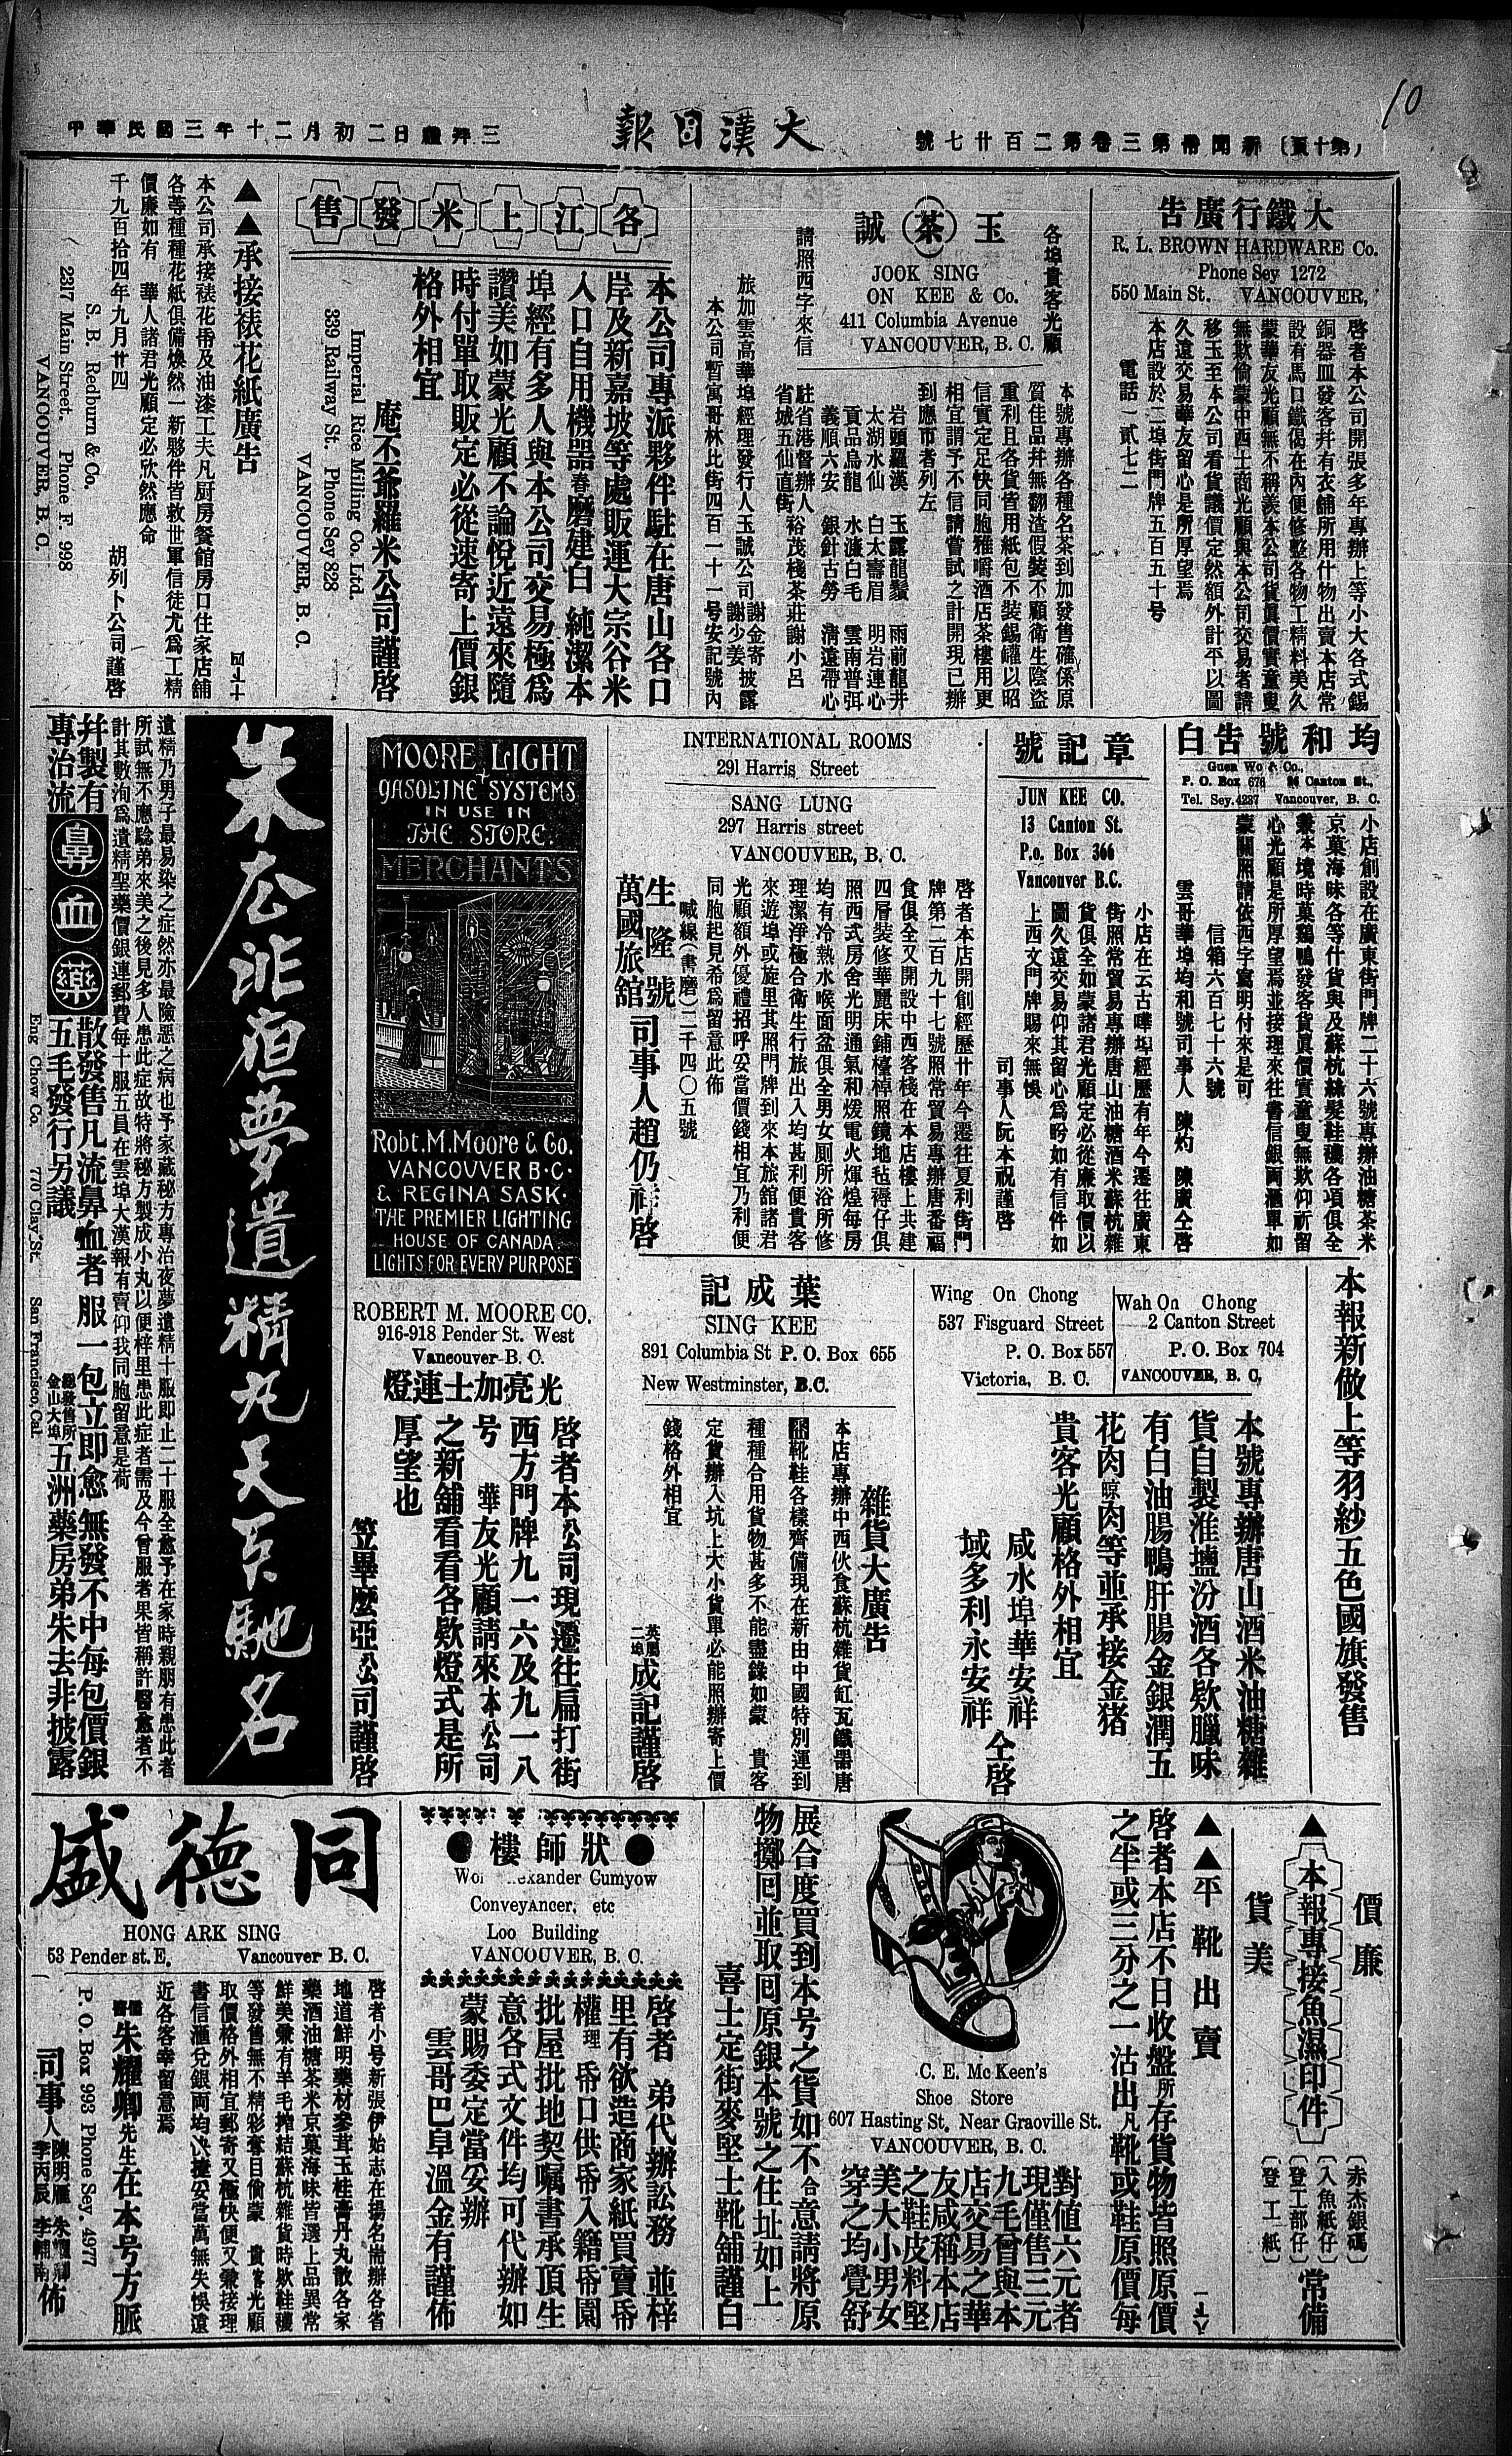 10
(第十頁)　新聞帋第三卷第二百廿七號
大漢日報
中華民國三年十二月初二日禮拜三
大鐵行廣告
R. L. BROWN HARDWARE Co.
Phone Sey 1272
550 Main St. VANCOUVER,
啓者本公司開張多年專辦上等小大各式錫
銅器皿發客幷有衣舖所用什物出賣本店常
設有馬口鐵偈在內便修整各物工精料美久
蒙華友光顧無不稱羨本公司貨眞價實童叟
無欺倘蒙中西士商光顧與本公司交易者請
移玉至本公司看貨議價定然額外計平以圖
久遠交易華友留心是所厚望焉
本店設於二埠街門牌五百五十号
電話一貳七二
各埠貴客光顧
玉茶誠
請照西字來信
JOOK SING
ON KEE & Co.
411 Columbia Avenue
VANCOUVER, B. C.
本號專辦各種名茶到加發售確係原
質佳品幷無翻渣假裝不顧衛生陰盜
重利且各貨皆用紙包不裝錫罐以昭
信實定足快同胞雅嚼酒店茶樓用更
相宜謂予不信請嘗試之計開現已辦
到應市者列左
岩頭羅漢　玉露龍鬚　雨前龍井
太湖水仙　白太壽眉　明岩連心
貢品烏龍　水濂白毛　雲南普弭
義順六安　銀針古勞　清遠帶心
駐省港督辦人
省城五仙直街　裕茂棧茶莊謝小呂
旅加雲高華埠經理發行人玉誠公司　謝金寄　謝少姜　披露
本公司暫寓哥林比街四百一十一号安記號內
各江上米發售
本公司專派夥伴駐在唐山各口
岸及新嘉坡等處販運大宗谷米
入口自用機器舂磨建白 純潔本
埠經有多人與本公司交易極爲
讚美如蒙光顧不論悅近遠來隨
時付單取販定必從速寄上價銀
格外相宜
庵丕爺羅米公司謹啓
Imperial Rice Milling Co. Ltd.
339 Railway St. Phone Sey 828
VANCOUVER, B. C.
▲▲承接裱花紙廣告
本公司承接裱花帋及油漆工夫凡厨房餐館房口住家店舖
各等種種花紙俱備煥然一新夥伴皆救世軍信徒尤爲工精
價廉如有　華人諸君光顧定必欣然應命
千九百拾四年九月廿四　胡列卜公司謹啓
S. B. Redburn & Co.
2317 Main Street. Phone F. 998
VANCOUVER, B. C.
均和號告白
Guen Wo & Co.,
P. O. Box 676 24 Canton St.,
Tel. Sey. 4237 Vancouver, B. C.
小店創設在廣東街門牌二十六號專辦油糖茶米
京菓海味各等什貨與及蘇杭絲髮鞋襪各項俱全
兼本境時菓鷄鴨發客貨眞價實童叟無欺仰祈留
心光顧是所厚望焉並接理來往書信銀兩滙單如
蒙關照請依西字寫明付來是可
信箱六百七十六號
雲哥華埠均和號司事人　陳灼　陳廣仝啓
章記號
JUN KEE CO.
13 Canton St.
P.o. Box 366
Vancouver B.C.
小店在云古嘩埠經歷有年今遷往廣東
街照常貿易專辦唐山油糖酒米蘇杭雜
貨俱全如蒙諸君光顧定必從廉取價以
圖久遠交易仰其留心爲盼如有信件如
上西文門牌賜來無悞
司事人阮本祝謹啓
INTERNATIONAL ROOMS
291 Harris Street
SANG LUNG
297 Harris street
VANCOUVER, B. C.
啓者本店開創經歷廿年今遷往夏利街門
牌第二百九十七號照常貿易專辦唐番福
食俱全又開設中西客棧在本店樓上共建
四層裝修華麗床鋪檯椅照鏡地毡褥仔俱
照西式房舍光明通氣和煖電火煇煌每房
均有冷熱水喉面盆俱全男女厠所浴所修
理潔淨極合衛生行旅出入均甚利便貴客
來遊埠或旋里其照門牌到來本旅舘諸君
光顧額外優禮招呼妥當價錢相宜乃利便
同胞起見希爲留意此佈
喊線(書磨)二千四〇五號
生隆號
萬國旅舘　司事人趙仍祥啓
MOORE LIGHT
GASOLINE SYSTEMS
IN USE IN
THE STORE.
MERCHANTS
Robt. M. Moore & Co.
VANCOUVER B·C·
& REGINA SASK·
THE PREMIER LIGHTING
HOUSE OF CANADA.
LIGHTS FOR EVERY PURPOSE
ROBERT M. MOORE CO.
916-918 Pender St. West
Vancouver B. C.
光亮加士連燈
啓者本公司現遷往扁打街
西方門牌九一六及九一八
号　華友光顧請來本公司
之新舖看看各欵燈式是所
厚望也
笠畢麼亞公司謹啓
朱去非夜夢遺精丸天下馳名
遺精乃男子最易染之症然亦最險惡之病也予家藏秘方專治夜夢遺精十服即止二十服全愈予在家時親朋有患此者
所試無不應騐弟來美之後見多人患此症故特將秘方製成小丸以便梓里患此症者需及今曾服者果皆稱許醫愈者不
計其數洵爲遺精聖藥價銀連郵費每十服五員在雲埠大漢報有賣仰我同胞留意是荷
幷製有
專治流　鼻血藥　散發售凡流鼻血者 服一包立即愈 無發不中每包價銀
五毛發行另議　總發售所金山大埠　五洲藥房弟朱去非披露
Eng Chow Co. 770 Clay St. San Francisco, Cal.
本報新做上等羽紗五色國旗發售
Wah On Chong
2 Canton Street
P. O. Box 704
VANCOUVER, B. C.
Wing On Chong
537 Fisguard Street
P. O. Box 557
Victoria, B. C.
本號專辦唐山酒米油糖雜
貨自製淮鹽汾酒各欵臘味
有白油腸鴨肝腸金銀潤五
花肉晾肉等並承接金猪
貴客光顧格外相宜
咸水埠華安祥
域多利永安祥　仝啓
葉成記
SING KEE
891 Columbia St P. O. Box 655
New Westminster, B.C.
雜貨大廣告
本店專辦中西伙食蘇杭雜貨缸瓦鐵器唐
靴鞋各樣齊備現在新由中國特別運到
種種合用貨物甚多不能盡錄如蒙　貴客
定貨辦入坑上大小貨單必能照辦寄上價
錢格外相宜
英屬二埠　成記謹啓
價廉
▲本報專接魚濕印件
貨美
(赤杰銀碼)
(入魚紙仔)
(登工部仔)
(登工紙)
常備
▲▲平靴出賣
啓者本店不日收盤所存貨物皆照原價
之半或三分之一沽出凡靴或鞋原價每
對值六元者
現僅售三元
九毛曾與本
店交易之華
友咸稱本店
之鞋皮料堅
美大小男女
穿之均覺舒
C. E. Mc Keen's
Shoe Store
607 Hasting St. Near Graoville St.
VANCOUVER, B. C.
展合度買到本号之貨如不合意請將原
物擲囘並取囘原銀本號之住址如上
喜士定街麥堅士靴舖謹白
狀師樓
Alexander Gumyow
Conveyancer, etc
Loo Building
VANCOUVER, B. C.
啓者　弟代辦訟務　並梓
里有欲造商家紙買賣帋
權理帋口供帋入籍帋園
批屋批地契嘱書承頂生
意各式文件均可代辦如
蒙賜委定當妥辦
雲哥巴阜溫金有謹佈
同德盛
HONG ARK SING
53 Pender st. E. Vancouver B. C.
啓者小号新張伊始志在揚名耑辦各省
地道鮮明藥材參茸玉桂膏丹丸散各家
藥酒油糖茶米京菓海味皆選上品異常
鮮美兼有羊毛搾結蘇杭雜貨時欵鞋襪
等發售無不精彩奪目倘蒙　貴客光顧
取價格外相宜郵寄又極快便又兼接理
書信滙兌銀両均快捷妥當萬無失悞遠
近各客幸留意焉
儒醫　朱耀卿先生在本号方脈
P. O. Box 993 Phone Sey. 4977
司事人　陳明雁　李丙辰　朱耀卿　李輔南　佈